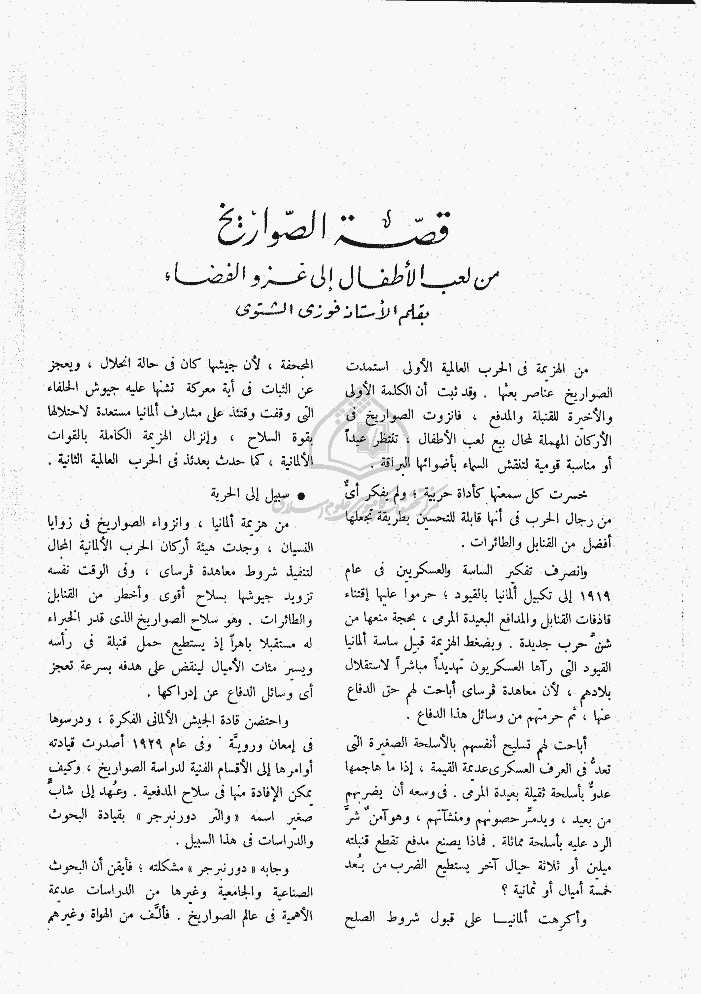 قصة الصواريخ
من لعب الأطفال إلى غزو الفضاء
بقلم الأستاذ فوزى الشتوى
من الهزيمة فى الحرب العالمية الأولى استمدت
الصواريخ عناصر بعثها . وقد ثبت أن الكلمة الأولى
والأخيرة للقنبلة والمدفع ، فانزوت الصواريخ فى
الأركان المهملة لمحال بيع لعب الأطفال ، تنتظر عيداً
أو مناسبة قومية لتنقش السماء بأضوائها البراقة .
خسرت كل سمعتها كأداة حربية ؛ ولم يفكر أىٌّ
من رجال الحرب فى أنها قابلة للتحسين بطريقة تجعلها
أفضل من القنابل والطائرات .
وانصرف تفكير الساسة والعسكريين فى عام
١٩١٩ إلى تكبيل ألمانيا بالقيود ؛ حرموا عليها إقتناء
قاذفات القنابل والمدافع البعيدة المرمى ، بحجة منعها من
شنِّ حرب جديدة . وبضغط الهزيمة قبل ساسة ألمانيا
القيود التى رآها العسكريون تهديداً مباشراً لاستقلال
بلادهم ، لأن معاهدة ڤرساى أباحت لهم حق الدفاع
عنها ، ثم حرمتهم من وسائل هذا الدفاع .
أباحت لهم تسليح أنفسهم بالأسلحة الصغيرة التى
تعدُّ فى العرف العسكرى عديمة القيمة ، إذا ما هاجمها
عدوٌّ بأسلحة ثقيلة بعيدة المرمى . فى وسعه أن يضربهم
من بعيد ، ويدمِّر حصونهم ومنشآتهم ، وهو آمنٌ شرَّ
الرد عليه بأسلحة مماثلة . فماذا يصنع مدفع تقطع قنبلته
ميلين أو ثلاثة حيال آخر يستطيع الضرب من بُعد
خمسة أميال أو ثمانية ؟
وأكرهت ألمانيا على قبول شروط الصلح
المجحفة ، لأن جيشها كان فى حالة انحلال ، ويعجز
عن الثبات فى أية معركة تشنها عليه جيوش الحلفاء
التى وقفت وقتئذ على مشارف ألمانيا مستعدة لاحتلالها
بقوة السلاح ، وإنزال الهزيمة الكاملة بالقوات
الألمانية ، كما حدث بعدئذ فى الحرب العالمية الثانية .
● سبيل إلى الحرية
من هزيمة ألمانيا ، وانزواء الصواريخ فى زوايا
النسيان ، وجدت هيئة أركان الحرب الألمانية المجال
لتنفيذ شروط معاهدة ڤرساى ، وفى الوقت نفسه
تزويد جيوشها بسلاح أقوى وأخطر من القنابل
والطائرات . وهو سلاح الصواريخ الذى قدر الخبراء
له مستقبلا باهراً إذ يستطيع حمل قنبلة فى رأسه
ويسير مئات الأميال لينقض على هدفه بسرعة تعجز
أى وسائل الدفاع عن إدراكها .
واحتضن قادة الجيش الألمانى الفكرة ، ودرسوها
فى إمعان ورويَّة . وفى عام ١٩٢٩ أصدرت قيادته
أوامرها إلى الأقسام الفنية لدراسة الصواريخ ، وكيف
يمكن الإفادة منها فى سلاح المدفعية . وعُهد إلى شابٍّ
صغير اسمه « والتر دورنبرجر » بقيادة البحوث
والدراسات فى هذا السبيل .
وجابه « دورنبرجر » مشكلته ؛ فأيقن أن البحوث
الصناعية والجامعية وغيرها من الدراسات عديمة
الأهمية فى عالم الصواريخ . فألَّف من الهواة وغيرهم